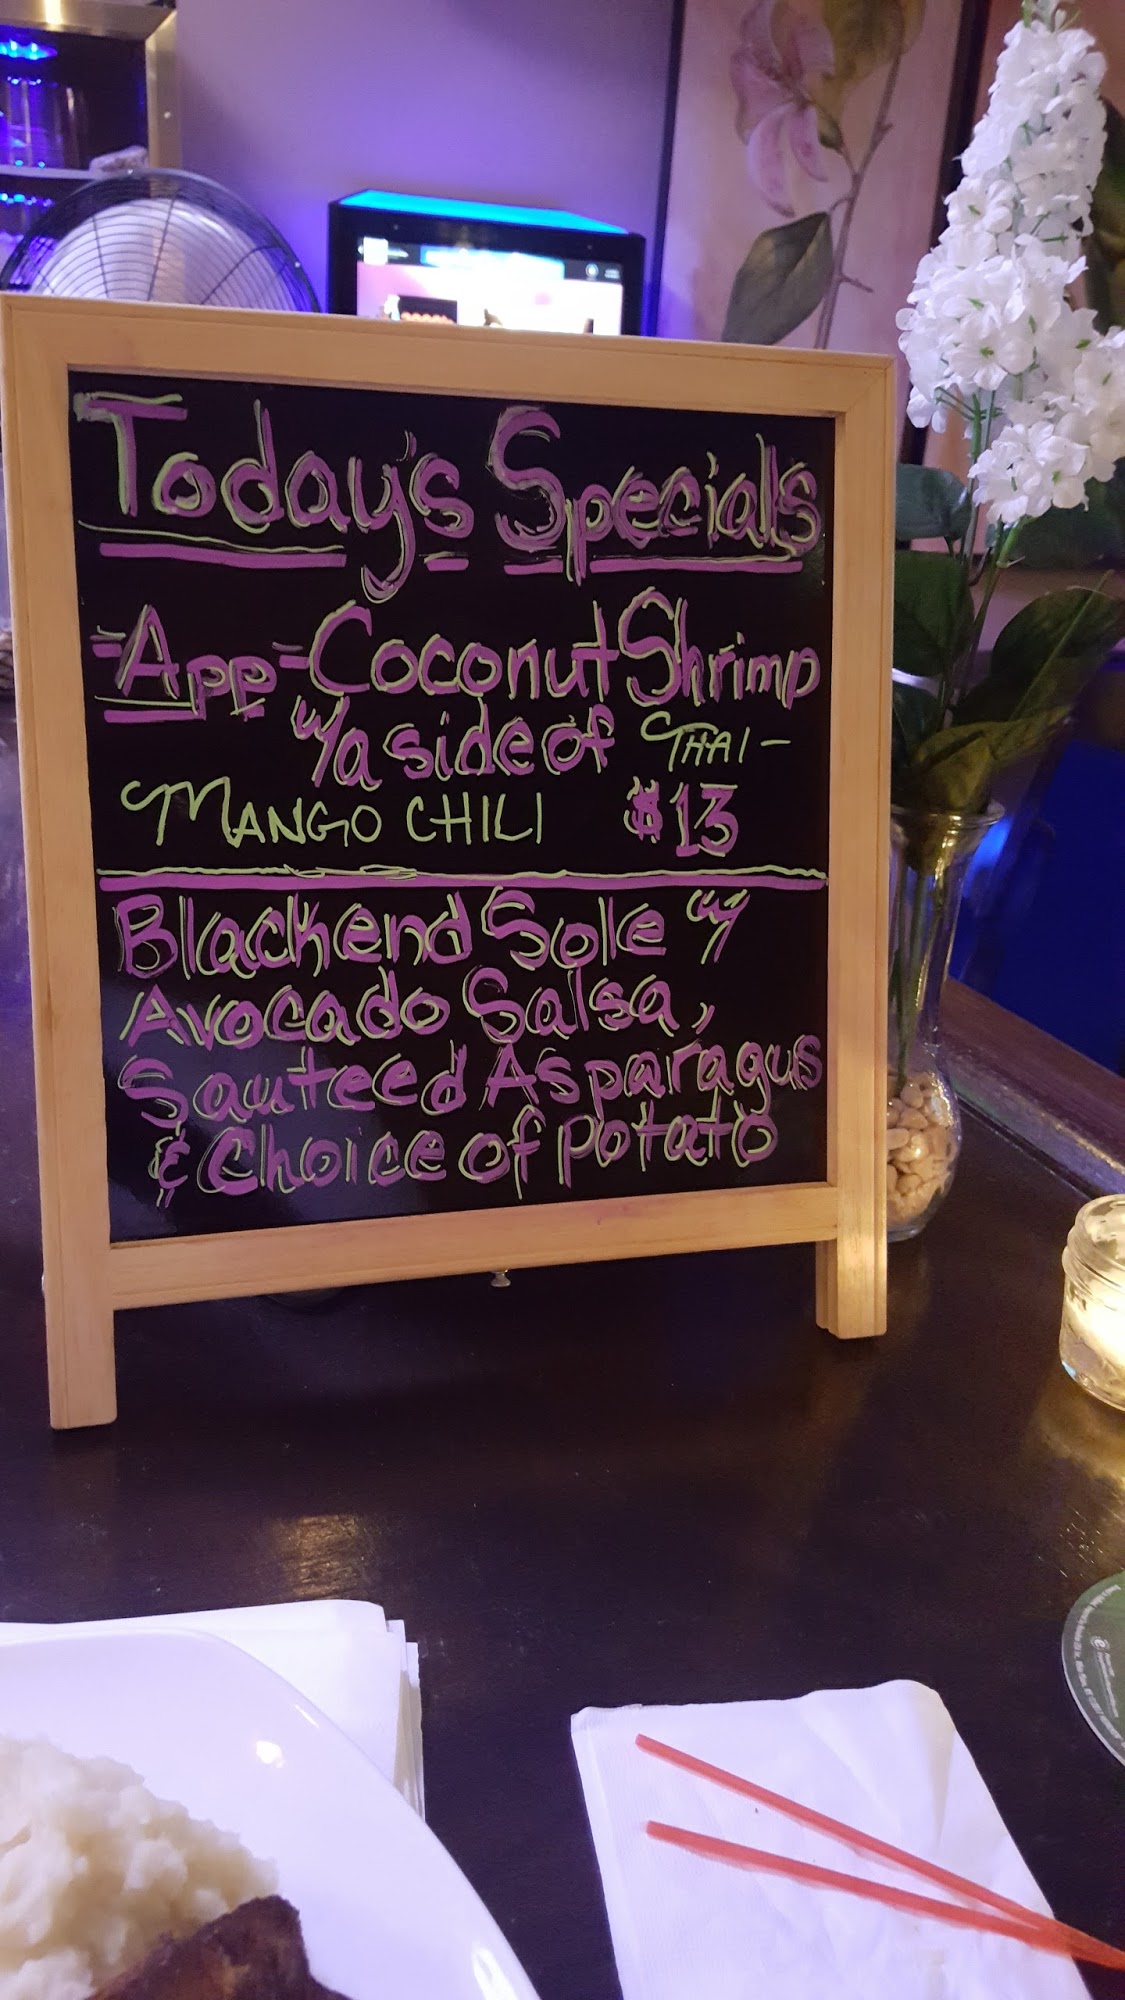 Today's Specials
- App - Coconut Shrimp
w/a side of THAI -
MANGO CHILI $13
Blackend Sole w/
Avocado Salsa,
Sauteed Asparagus
& Choice of Potato